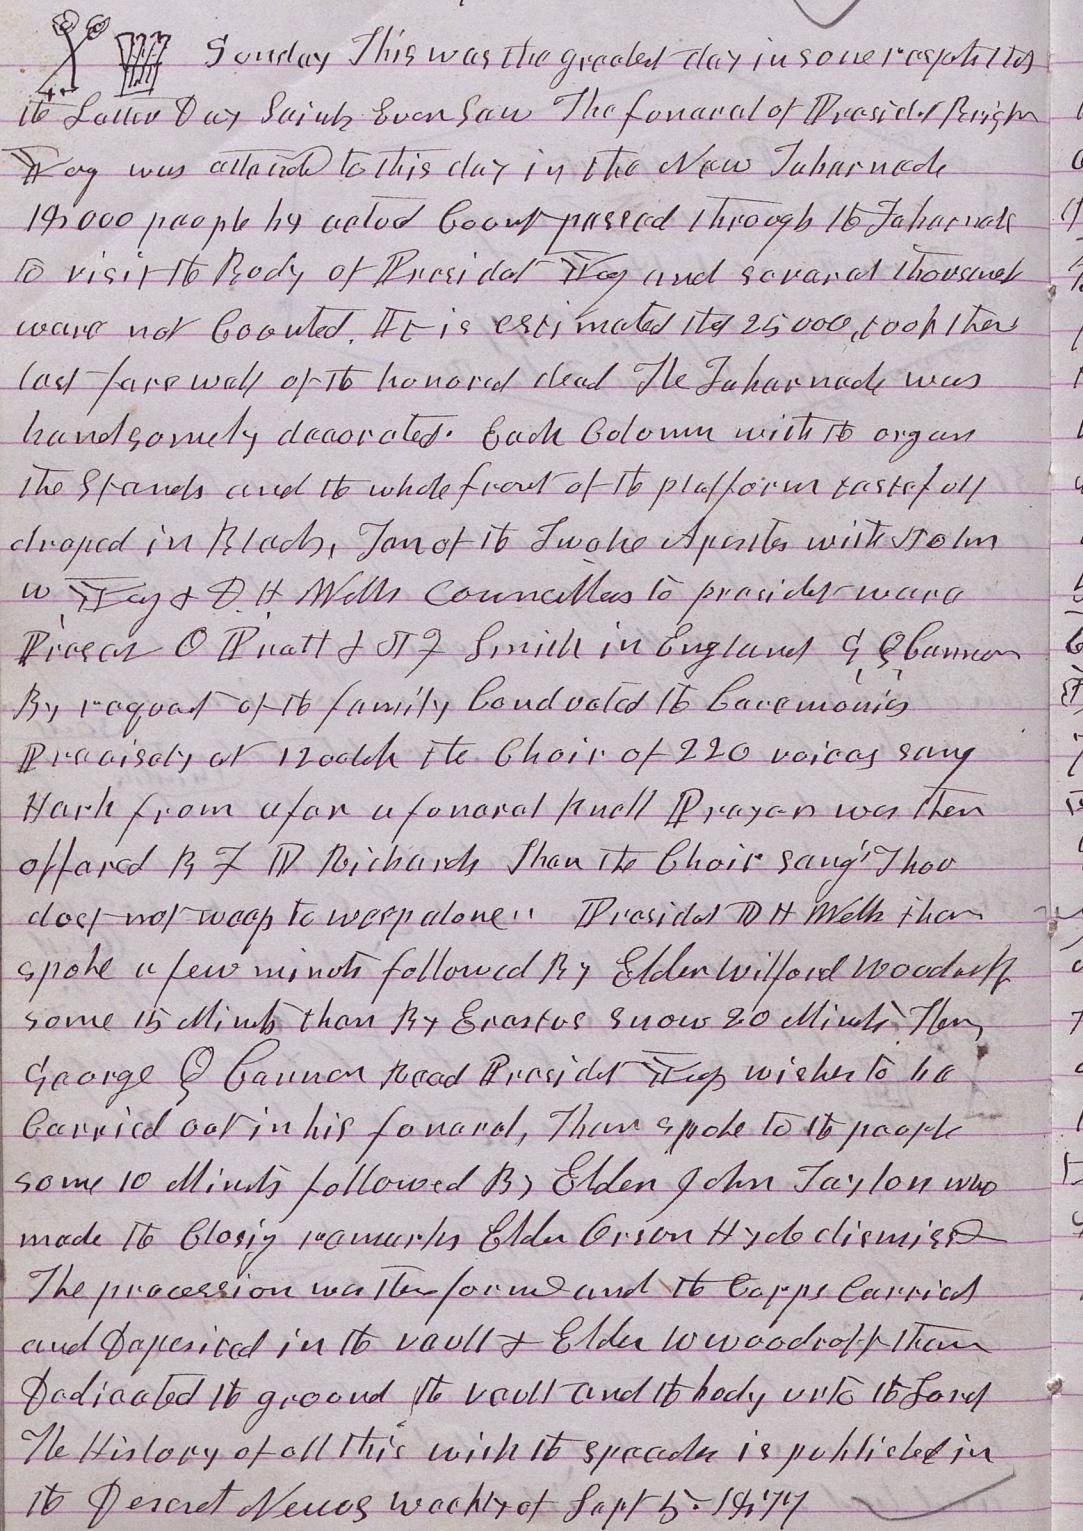 Sunday This was the greatest day in some respects that
the Latter Day Saints Ever Saw The funeral of President Brigham
Young was attended to this day in the New Tabernacle
18,000 people by actual Count passed through the Tabernacle
to visit the Body of President Young and several thousand
were not Counted. It is estimated that 25000, took their
last farewell of the honored dead The Tabernacle was
handsomely decorated. Each Column with the organ
the Stands and the whole front of the platform tastefull
draped in Black, Ten of the Twelve Apostles with John
W Young & D H Wells Councillors to president were
Present O Pratt & J F Smith in England G Q Cannon
By request of the family Conducted the Ceremonies
Precisely at 12 oclok the Choir of 220 voices sang
Hark from afar a funeral knell Prayer was then
offered B F D Richards Then the Choir sang "Thou
does not weep to weep alone" President D H Wells then
spoke a few minuts followed By Elder Wilford Woodruff
some 15 Minuts then By Erastus Snow 20 Minuts Then
George Q Cannon Read President Young wishes to be
Carried out in his funeral, Then spoke to the people
some 10 Minuts followed By Elder John Taylor who
made the Closig remarks Elder Orson Hyde dismissd
The procession was then formed and the Corpps Carried
and Deposited in the vault & Elder W Woodruff then
Dedicated the ground the vault and the body unto the Lord
The History of all this with the speeches is published in
the Deseret News weekly of Sept 5. 1877